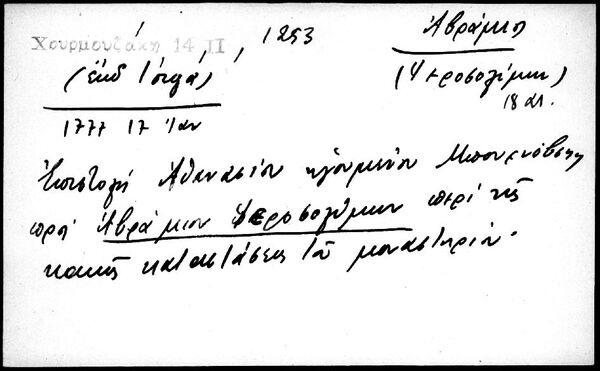 Χουρμουζάκη 14 II, 1253
(ἐκδ Ἰόργα)
1777 17 Ἰαν
Ἀβράμιος
(Ἱεροσολύμων)
18 αι.
Ἐπιστολή Ἀθανασίου ἡγουμένου
πρός Ἀβράμιον Ἱεροσολύμων περί τῆς
κακῆς καταστάσεως τοῦ μοναστηρίου.